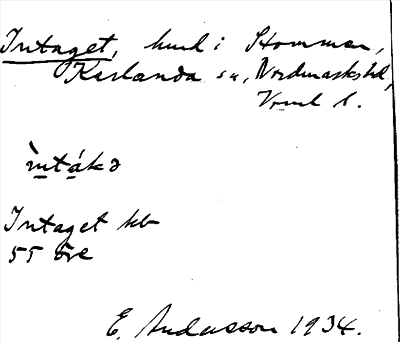 Intaget, hmd i Hommen,
Karlanda sn, Nordmarks hd,
Vrml l.
ìntákə
Intaget kb
55 öre
E. Andersson 1934.